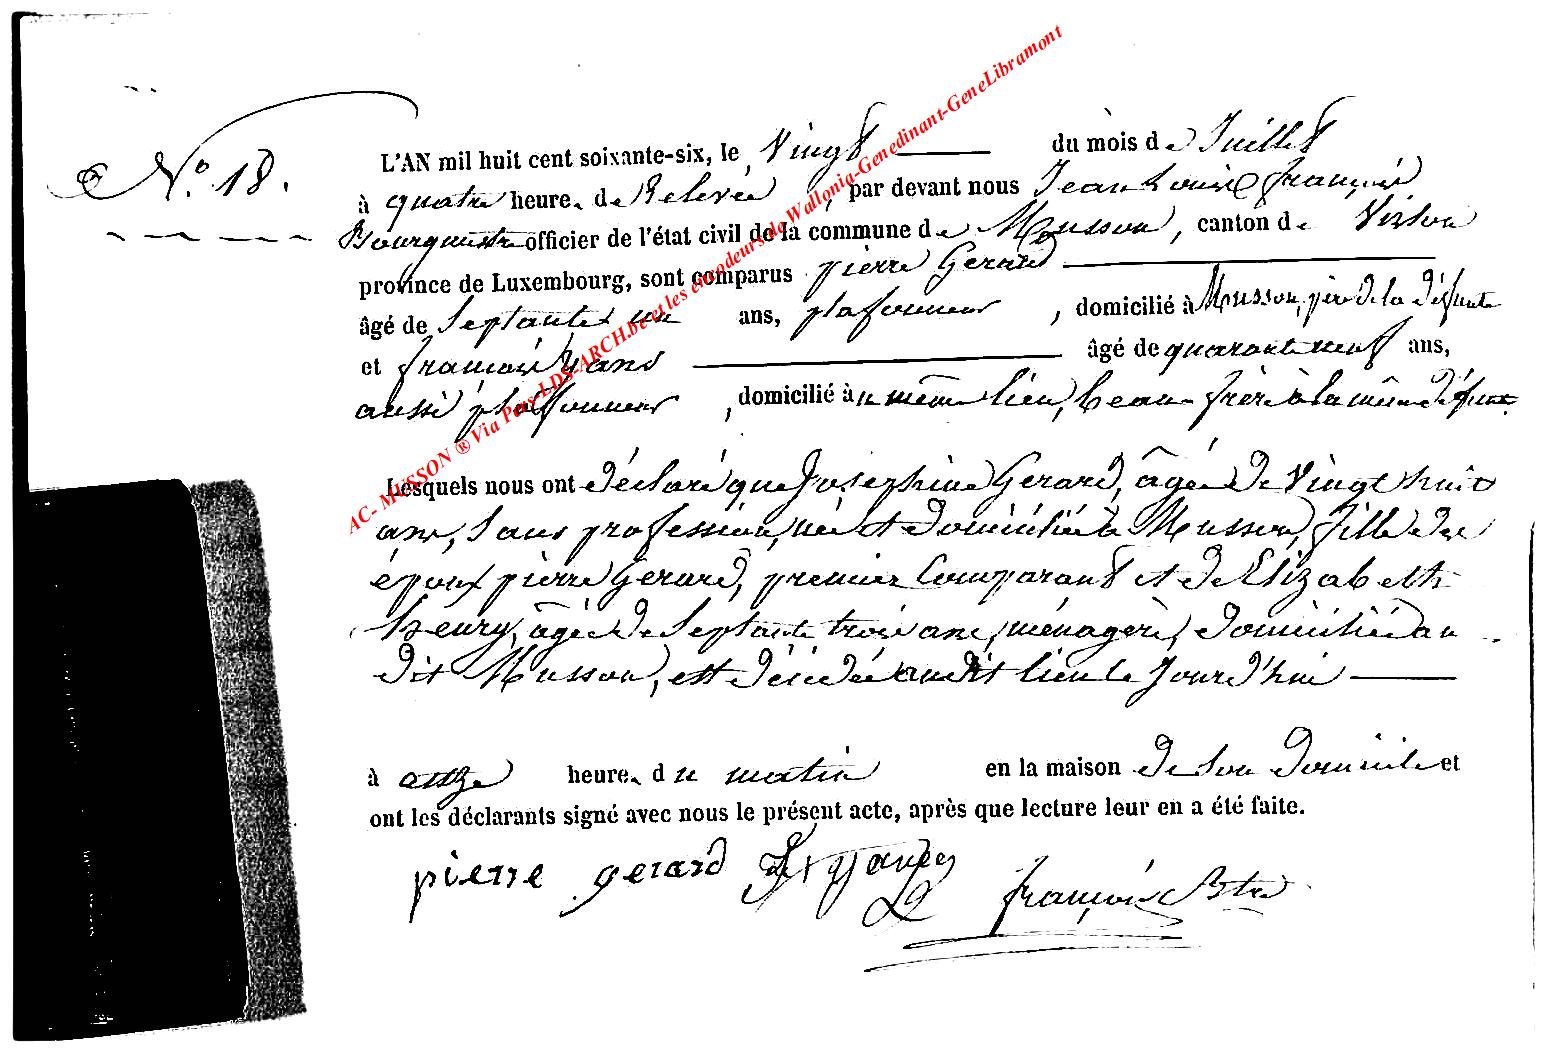 N.o 18.
L'AN mil huit cent soixante-six, le Vingt du mois de Juillet
à quatre heure. de Relevée, par devant nous Jean Louis françois
Bourgmestre officier de l'état civil de la commune de Musson, canton de Virton
province de Luxembourg, sont comparus pierre Gerard
âgé de Septante un ans, plafonneur, domicilié à Musson, père de la défunte
et françois yans âgé de quarante neuf ans,
aussi plafonneur, domicilié au même lieu, beau frère à la même défunte
Lesquels nous ont déclaré que Josephine Gerard, âgée de Vingt huit
ans, Sans profession, née et domiciliée à Musson, fille des
époux pierre Gerard, premier Comparant et de Elizabeth
henry, âgée de Septante trois ans, ménagère, domiciliée au
dit Musson, est décédée audit lieu le Jourd'hui
à onze heure. du matin en la maison de Son domicile et
ont les déclarants signé avec nous le présent acte, après que lecture leur en a été faite.
pierre gerard yans
françois Btre
AC- MUSSON ® Via Pars-LDS-ARCH.be et les encodeurs de Wallonia-Genedinant-GeneLibramont